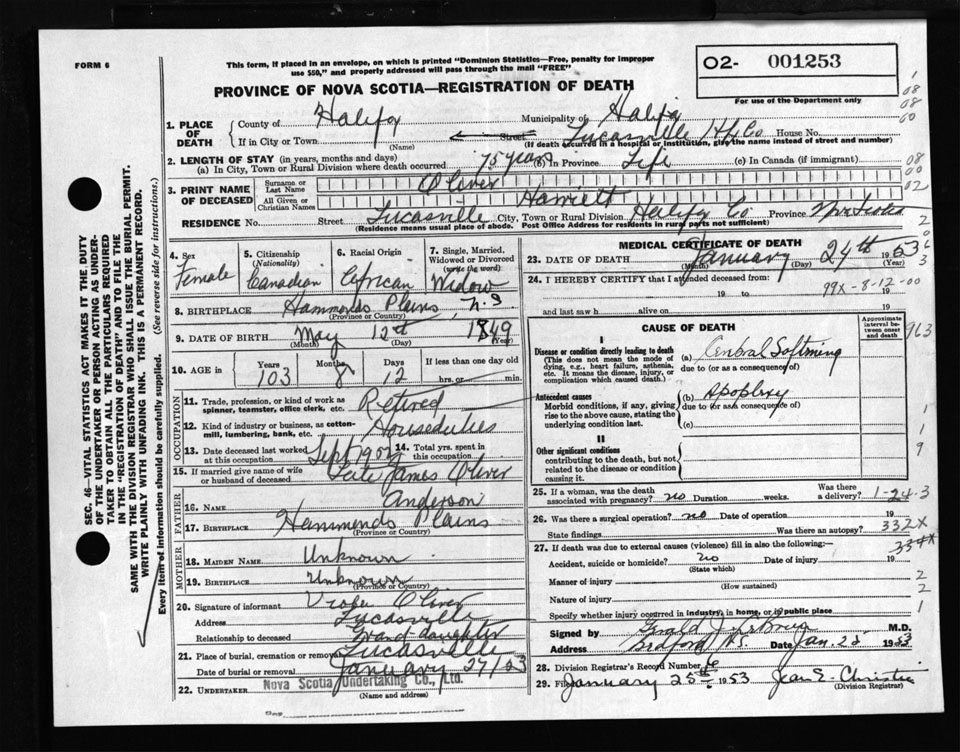 FORM 6
This form, if placed in an envelope, on which is printed "Dominion Statistics—Free, penalty for improper
use $50," and properly addressed will pass through the mail "FREE"
PROVINCE OF NOVA SCOTIA—REGISTRATION OF DEATH
O2- 001253
For use of the Department only
1. PLACE OF DEATH
County of Halifax Municipality of Halifax
If in City or Town (Name) Street Lucasville Hfx Co House No.
(If death occurred in a hospital or institution, give the name instead of street and number)
2. LENGTH OF STAY (in years, months and days)
(a) In City, Town or Rural Division where death occurred 75 years In Province Life (c) In Canada (if immigrant)
3. PRINT NAME OF DECEASED
Surname or Last Name Oliver
All Given or Christian Names Harriett
RESIDENCE No. Street Lucasville City, Town or Rural Division Halifax Co Province Nova Scotia
(Residence means usual place of abode. Post Office Address for residents of rural parts not sufficient)
4. Sex Female
5. Citizenship (Nationality) Canadian
6. Racial Origin African
7. Single, Married, Widowed or Divorced (write the word) Widow
8. BIRTHPLACE Hammonds Plains, N.S
(Province or Country)
9. DATE OF BIRTH May 12th 1849
(Month) (Day) (Year)
10. AGE in Years 103 Months 8 Days 12 If less than one day old hrs. or min.
OCCUPATION
11. Trade, profession, or kind of work as spinner, teamster, office clerk, etc. Retired
12. Kind of industry or business, as cotton-mill, lumbering, bank, etc. Houseduties
13. Date deceased last worked at this occupation Sept 1952
14. Total yrs. spent in this occupation
15. If married give name of wife or husband of deceased Late James Oliver
FATHER
16. NAME Anderson
17. BIRTHPLACE Hammonds Plains
(Province or Country)
MOTHER
18. MAIDEN NAME Unknown
19. BIRTHPLACE Unknown
(Province or Country)
20. Signature of informant Oliver
Address Lucasville
Relationship to deceased Grand-daughter
21. Place of burial, cremation or removal Lucasville
Date of burial or removal January 27/53
22. UNDERTAKER Nova Scotia Undertaking Co., Ltd.
(Name and address)
MEDICAL CERTIFICATE OF DEATH
23. DATE OF DEATH January 24th 1953
(Month) (Day) (Year)
24. I HEREBY CERTIFY that I attended deceased from:
19 to 19
99X-8-12-00
and last saw h alive on 19
CAUSE OF DEATH
Approximate interval between onset and death
I
Disease or condition directly leading to death
(This does not mean the mode of dying, e.g., heart failure, asthenia, etc. It means the disease, injury, or complication which caused death.)
(a) Cerebral Softning
due to (or as a consequence of)
Antecedent causes
Morbid conditions, if any, giving rise to the above cause, stating the underlying condition last.
(b) Apoplexy
due to (or as a consequence of)
(c)
II
Other significant conditions
contributing to the death, but not related to the disease or condition causing it.
25. If a woman, was the death associated with pregnancy? no Duration weeks. Was there a delivery?
1-24-3
26. Was there a surgical operation? no Date of operation 19
State findings Was there an autopsy?
332X
27. If death was due to external causes (violence) fill in also the following:—
334X
Accident, suicide or homicide? no Date of injury 19
(State which)
Manner of injury
(How sustained)
Nature of injury
Specify whether injury occurred in industry, in home, or in public place
Signed by Gerald J. M.D.
Address Bedford N.S. Date Jan. 25 1953
28. Division Registrar's Record Number 6
29. Filed January 25th 1953 Jean E. Christie
(Division Registrar)
SEC. 46—VITAL STATISTICS ACT MAKES IT THE DUTY
OF THE UNDERTAKER OR PERSON ACTING AS UNDER-
TAKER TO OBTAIN ALL THE PARTICULARS REQUIRED
IN THE "REGISTRATION OF DEATH" AND TO FILE THE
SAME WITH THE DIVISION REGISTRAR WHO SHALL ISSUE THE BURIAL PERMIT.
WRITE PLAINLY WITH UNFADING INK. THIS IS A PERMANENT RECORD.
Every item of information should be carefully supplied. (See reverse side for instructions.)
1
08
08
60
08
00
02
2
0
6
3
963
1
1
9
2
2
1